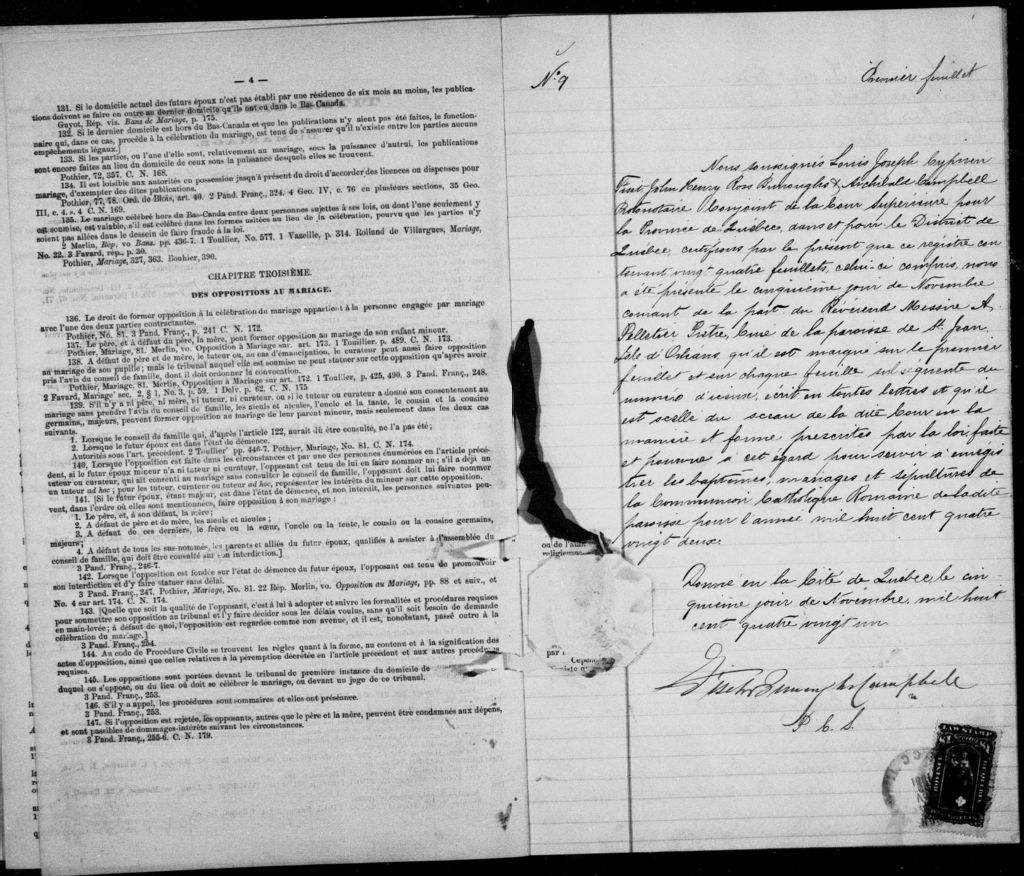 — 4 —
131. Si le domicile actuel des futurs époux n'est pas établi par une résidence de six mois au moins, les publica-
tions doivent se faire en outre au dernier domicile qu'ils ont eu dans le Bas-Canada.
Guyot, Rép. vis. Bans de Mariage, p. 175.
132. Si le dernier domicile est hors du Bas-Canada et que les publications n'y aient pas été faites, le fonction-
naire qui, dans ce cas, procède à la célébration du mariage, est tenu de s'assurer qu'il n'existe entre les parties aucuns
empêchements légaux.]
133. Si les parties, ou l'une d'elle sont, relativement au mariage, sous la puissance d'autrui, les publications
sont encore faites au lieu du domicile de ceux sous la puissance desquels elles se trouvent.
Pothier, 72, 357. C. N. 168.
134. Il est loisible aux autorités en possession jusqu'à présent du droit d'accorder des licences ou dispenses pour
mariage, d'exempter des dites publications.
Pothier, 77, 78. Ord. de Blois, art. 40. 2 Pand. Franç., 324. 4 Geo. IV, c. 76 en plusieurs sections, 35 Geo.
III, c. 4. s. 4 C. N. 169.
135. Le mariage célébré hors du Bas-Canada entre deux personnes sujettes à ses lois, ou dont l'une seulement y
est soumise, est valable, s'il est célébré dans les formes usitées au lieu de la célébration, pourvu que les parties n'y
soient pas allées dans le dessein de faire fraude à la loi.
2 Merlin, Rép. vo Bans. pp. 436-7. 1 Toullier, No. 577. 1 Vazeille, p. 314. Rolland de Villargues, Mariage,
No. 22. 3 Favard, rép., p. 30.
Pothier, Mariage, 327, 363. Bouhier, 390.
CHAPITRE TROISIÈME.
DES OPPOSITIONS AU MARIAGE.
136. Le droit de former opposition à la célébration du mariage appartient à la personne engagée par mariage
avec l'une des deux parties contractantes.
Pothier, No. 81. 3 Pand. Franç., p. 241 C. N. 172.
137. Le père, et à défaut du père, la mère, peut former opposition au mariage de son enfant mineur.
Pothier, Mariage, 81. Merlin, vo. Opposition à Mariage sur. art. 173. 1 Toullier. p. 489. C. N. 173.
138. A défaut de père et de mère, le tuteur ou, au cas d'émancipation, le curateur peut aussi faire opposition
au mariage de son pupille ; mais le tribunal auquel elle est soumise ne peut statuer sur cette opposition qu'après avoir
pris l'avis du conseil de famille, dont il doit ordonner la convocation.
Pothier, Mariage, 81. Merlin, Opposition à Mariage sur art. 172. 1 Toullier, p. 425, 490, 3 Pand. Franç., 248.
2 Favard, Mariage' sec. 2, § 1, No. 3, p. 59. 1 Delv. p. 62. C. N. 175
139. S'il n'y a ni père, ni mère, ni tuteur, ni curateur, ou si le tuteur ou curateur a donné son consentement au
mariage sans prendre l'avis du conseil de famille, les aïeuls et aïeules, l'oncle et la tante, le cousin et la cousine
germains, majeurs, peuvent former opposition au mariage de leur parent mineur, mais seulement dans les deux cas
suivants.
1. Lorsque le conseil de famille qui, d'après l'article 122, aurait dû être consulté, ne l'a pas été ;
2. Lorsque le futur époux est dans l'état de démence.
Autorités sous l'art. précédent. 2 Toullier' pp. 446-7. Pothier, Mariage, No. 81. C. N. 174.
140. Lorsque l'opposition est faite dans les circonstances et par une des personnes énumérées en l'article précé-
dent, si le futur époux mineur n'a ni tuteur ni curateur, l'opposant est tenu de lui en faire nommer un ; s'il a déjà un
tuteur ou curateur, qui ait consenti au mariage sans consulter le conseil de famille, l'opposant doit lui faire nommer
un tuteur ad hoc ; pour les tuteur, curateur ou tuteur ad hoc, représenter les intérêts du mineur sur cette opposition.
141. [Si le futur époux, étant majeur, est dans l'état de démence, et non interdit, les personnes suivantes peu-
vent, dans l'ordre où elles sont mentionnées, faire opposition à son mariage :
1. Le père, et, à son défaut, la mère ;
2. A défaut de père et de mère, les aïeuls et aïeules ;
3. A défaut de ces derniers, le frère ou la sœur, l'oncle ou la tante, le cousin ou la cousine germains,
majeurs ;
4. A défaut de tous les sus-nommés, les parents et alliés du futur époux, qualifiés à assister à l'assemblée du
conseil de famille, qui doit être consulté sur son interdiction.]
3 Pand. Franç., 246-7.
142. Lorsque l'opposition est fondée sur l'état de démence du futur époux, l'opposant est tenu de promouvoir
son interdiction et d'y faire statuer sans délai.
3 Pand. Franç., 247. Pothier, Mariage, No. 81. 22 Rép. Merlin, vo. Opposition au Mariage, pp. 88 et suiv., et
No. 4 sur art. 174. C. N. 174.
143. [Quelle que soit la qualité de l'opposant, c'est à lui à adopter et suivre les formalités et procédures requises
pour soumettre son opposition au tribunal et l'y faire décider sous les délais voulus, sans qu'il soit besoin de demande
en main-levée ; à défaut de quoi, l'opposition est regardée comme non avenue, et il est, nonobstant, passé outre à la
célébration du mariage.]
3 Pand. Franç., 254.
144. Au code de Procédure Civile se trouvent les règles quant à la forme, au contenu et à la signification des
actes d'opposition, ainsi que celles relatives à la péremption décrétée en l'article précédent et aux autres procédures
requises.
145. Les oppositions sont portées devant le tribunal de première instance du domicile de
duquel on s'oppose, ou du lieu où doit se célébrer le mariage, ou devant un juge de ce tribunal.
3 Pand. Franç., 253.
146. S'il y a appel, les procédures sont sommaires et elles ont préséance.
3 Pand. Franç., 253.
147. Si l'opposition est rejetée, les opposants, autres que le père et la mère, peuvent être condamnés aux dépens,
et sont passibles de dommages-intérêts suivant les circonstances.
3 Pand. Franç., 255-6. C. N. 179.
No 9
ou de l'
religieuse
par
Cepen
Premier feuillet
Nous soussignés Louis Joseph Cyprien
Fiset, John Henry Ross Burroughs & Archibald Campbell
Protonotaire Conjoint de la Cour Supérieure pour
la Province de Québec, dans et pour le District de
Québec, certifions par le présent que ce registre con
tenant vingt quatre feuillets, celui-ci compris, nous
a été présenté le cinquième jour de Novembre
courant de la part du Révérend Messire A.
Pelletier Prêtre, Curé de la paroisse de St. Jean,
Isle d'Orléans, qu'il est marqué sur le premier
feuillet et sur chaque feuille subséquente du
numéro d'icelui, écrit en toutes lettres et qu'il
est scellé du sceau de la dite Cour en la
manière et forme prescrites par la loi faite
et pourvue à cet égard pour servir à enregis
trer les baptêmes, mariages et sépultures de
la Communion Catholique Romaine de la dite
paroisse pour l'année mil huit cent quatre
vingt deux.
Donné en la Cité de Québec, le cin-
quième jour de Novembre, mil huit
cent quatre vingt un
Fiset Burroughs & Campbell
P. C. S.
LAW STAMP